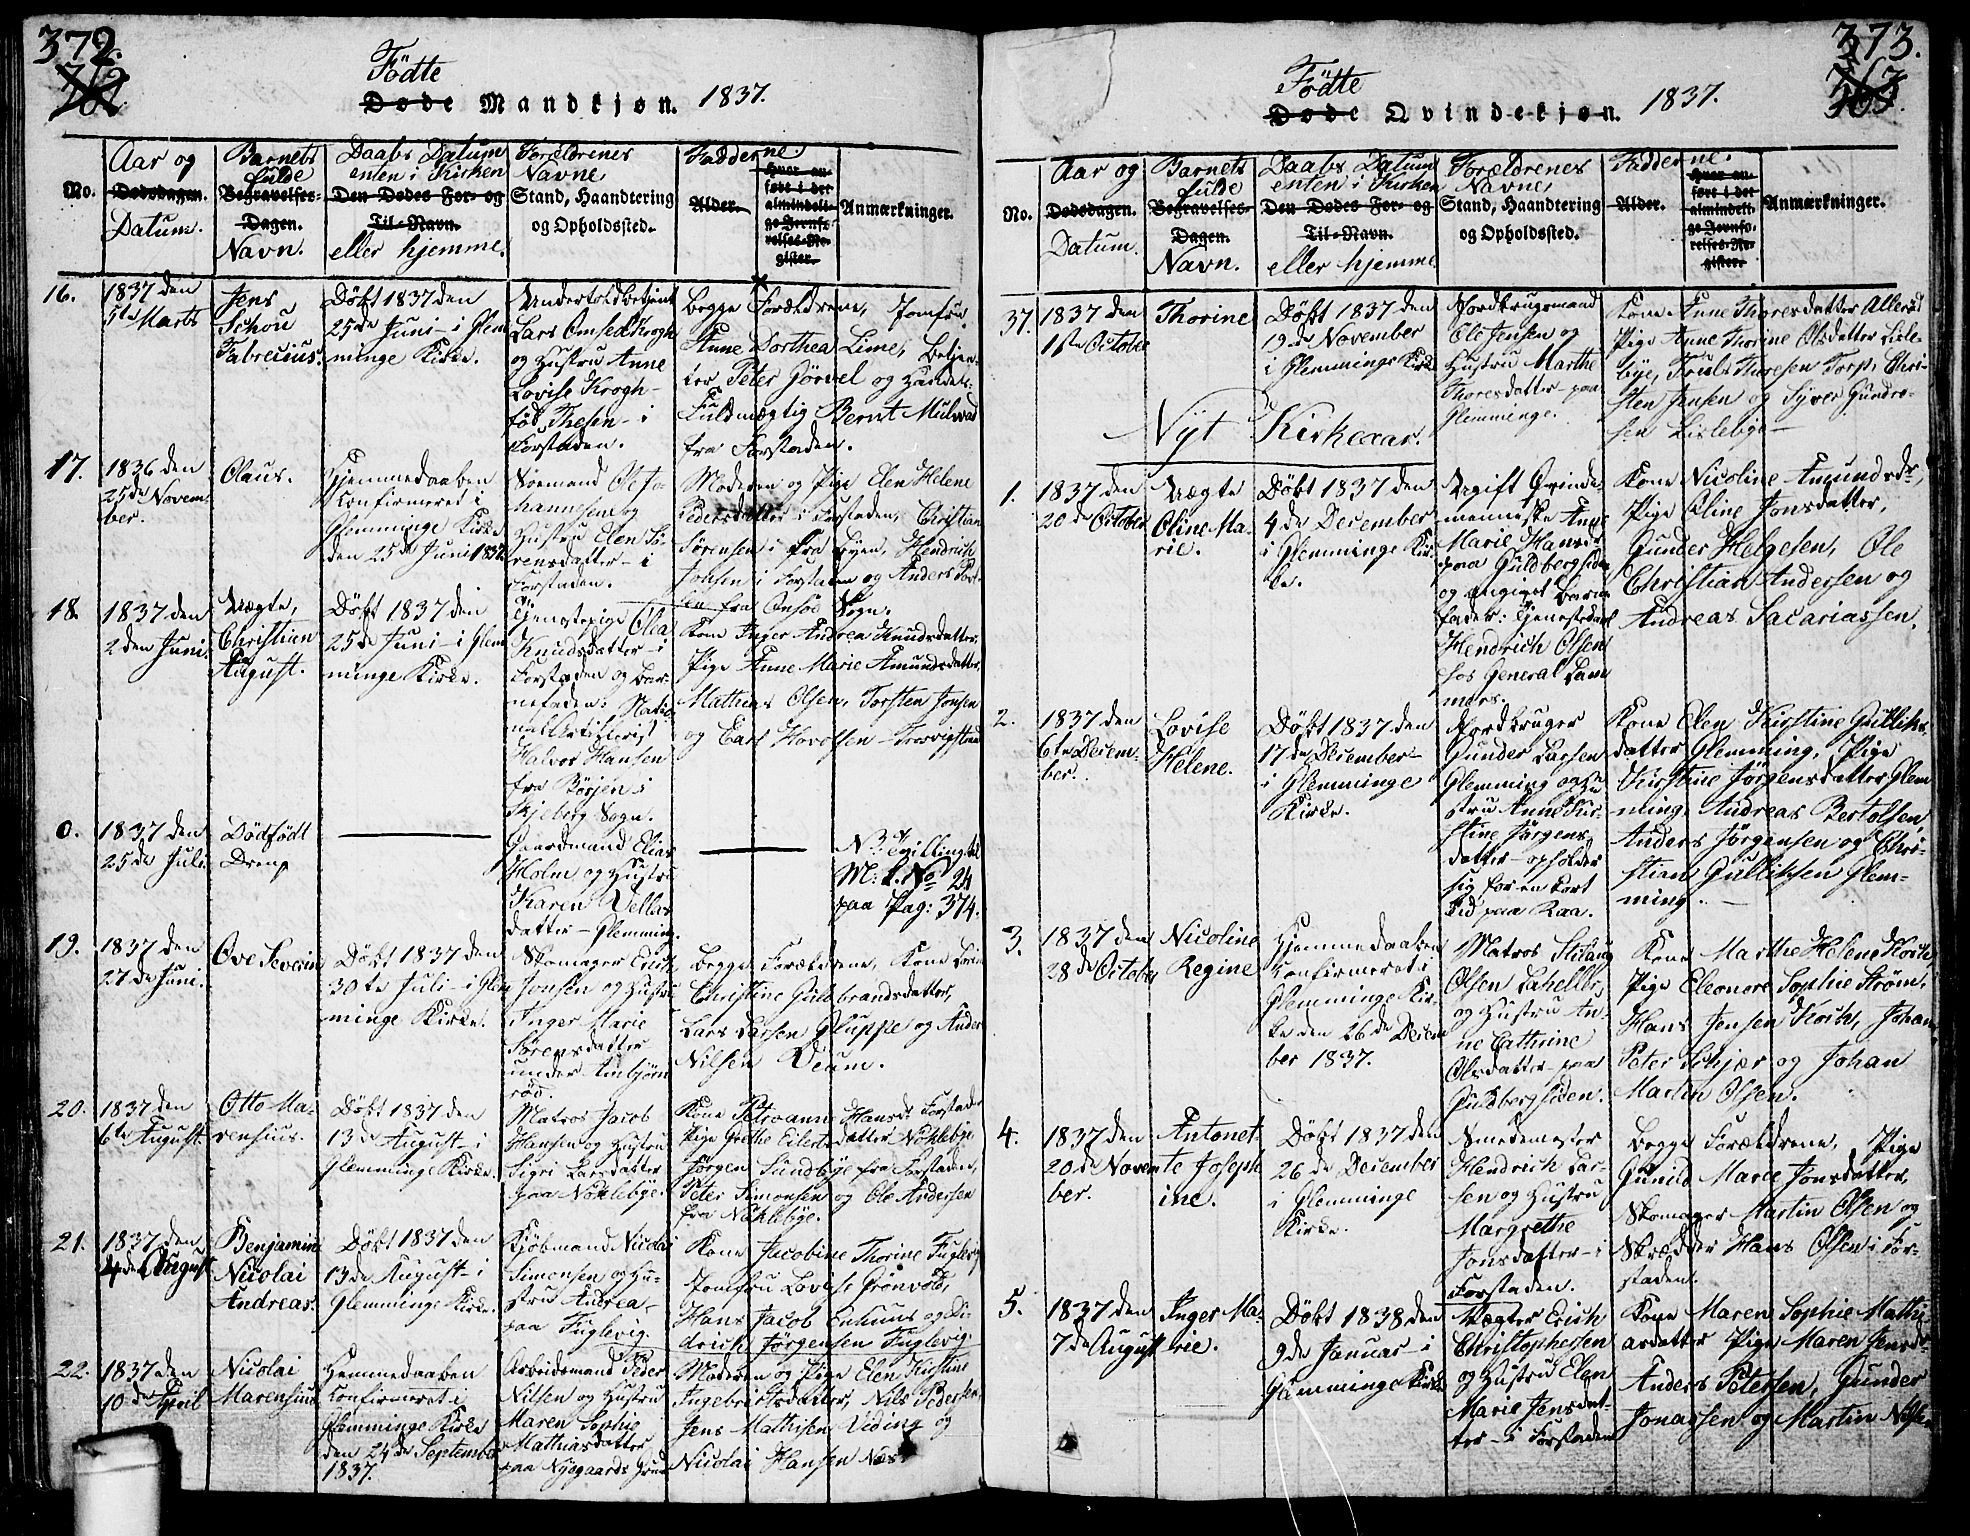 372.
Födte
Døde Mandkjøn. 1837.
No.
Aar og
Dødsdagen.
Datum.
Barnets
fulde
Begravelses-
Dagen.
Navn.
Daabs Datum
enten i Kirken
Den Dødes For- og
Til-Navn.
eller hjemme.
Forældrenes
Navne
Stand, Haandtering
og Opholdssted.
Fadderne.
Alder.
Hvor an-
ført i det
almindeli-
ge Jevnfø-
relses-Re-
gister.
Anmærkninger.
16.
1837 den
5te Marts
Jens
Schou
Fabrecius.
Døbt 1837 den
25de Juni - i Glem
minge Kirke.
Undertoldbetjent
Lars Omsed Krogh
og Hustru Anne
Lovise Krogh
fød Thesen - i
Forstaden.
Begge Forældrene, Jomfru
Anne Dorthea Lime, Betjen-
ter Peter Jörvel og Handels-
Fuldmægtig Bernt Mulvad
fra Forstaden.
17.
1836 den
25de Novem-
ber.
Olaus.
Hjemmedaaben
Confirmeret i
Glemminge Kirke
den 25de Juni 1837.
Soemand Ole Jo-
hannsen og
Hustru Elen Sö-
rensdatter - i
Forstaden.
Moderen og Pige Elen Helene
Pedersdatter - i Forstaden, Christian
Sörensen i fra Byen, Hendrich
Johsen i Forstaden og Anders
fra Onsöe Sogn.
18.
1837 den
2den Juni.
Uægte,
Christian
August.
Døbt 1837 den
25de Juni - i Glem
minge Kirke.
Tjenestepige Olea
Knudsdatter - i
Forstaden og Bar-
nefader: Natio-
nal Artillerist
Halvor Hansen
fra Börjen i
Skjeberg Sogn.
Kone Inger Andrea Knudsdatter,
Pige Anne Marie Amundsdatter,
Mathias Olsen, Torsten Jonsen
og Carl Hovolsen -
0.
1837 den
25de Juli
Dödfödt
Dreng
Gaardmand Elias
Holm og Hustru
Karen Vellas
datter - Glemming.
NB: Tvilling til
M: L. No 24
paa Pag: 374.
19.
1837 den
27de Juni.
Ove Severin
Døbt 1837 den
30te Juli - i Glem
minge Kirke.
Skomager Erich
Jonsen og Hustru
Inger Marie
Sörensdatter
under Ambjörn
röd.
Begge Forældrene, Kone
Christine Guldbrandsdatter,
Lars Larsen Gluppe og Anders
Nilsen Veum.
20.
1837 den
6te August.
Otto Ma-
rensius.
Døbt 1837 den
13de August - i
Glemminge Kirke.
Matros Jacob
Hansen og Hustru
Sigri Larsdatter
paa Nöklebye.
Kone Petroanna Hansdr Forstaden
Pige Grethe Eilertsdatter Nöklebye
Jörgen Sundbye fra Forstaden,
Peter Simonsen og Ole Andersen
fra Nöklebye.
21.
1837 den
4de August
Benjamin
Nicolai
Andreas.
Døbt 1837 den
13de August - i
Glemminge Kirke.
Kjöbmand Nicolai
Simonsen og Hu-
stru Andrea -
paa Fuglevig.
Kone Jacobine Thorine Fuglevig
Jomfru Lovise Grönvold,
Hans Jacob og Di-
drich Jörgensen Fuglevig.
22.
1837 den
10de April
Nicolai
Marensius
Hemmedaaben
Confirmeret i
Glemminge Kirke
den 24de September
1837.
Arbeidsmand Peder
Nilsen og Hustru
Maren Sophie
Mathiasdatter
paa Nygaards Grund
Moderen og Pige Elen Kistine
Ingebrigtsdatter, Nils Pedersen
Jens Mathisen Veding og
Nicolai Hansen Næs.
373.
Födte
Døde Qvindekjøn. 1837.
No.
Aar og
Dødsdagen.
Datum.
Barnets
fulde
Begravelses-
Dagen.
Navn.
Daabs Datum
enten i Kirken
Den Dødes For- og
Til-Navn.
eller hjemme
Forældrenes
Navne,
Stand, Haandtering
og Opholdssted.
Fadderne.
Alder.
Hvor an-
ført i det
almindeli-
ge Jevnfø-
relses-Re-
gister.
Anmærkninger.
37.
1837 den
11te October
Thorine
Døbt 1837 den
19de November
i Glemminge Kirke
Jordbrugsmand
Ole Jensen og
Hustru Marthe
Thoresdatter - paa
Glemminge.
Kone Anne Thoresdatter Alleröd
Pige Anne Thorine Olsdatter Lisle-
bye, Truls Thoresen Torp, Chri-
sten Jensen og Syver Gundro-
sen Lislebye -
Nyt Kirkeaar.
1.
1837 den
20de October
Uægte
Oline Ma-
rie.
Døbt 1837 den
4de December
i Glemminge Kir-
ke.
Ugift Qvinde-
menniske Anne
Marie Hansdr
paa Guldbergsiden
og angivet Barne
fader: Tjenestekarl
Hendrich Olsen
hos General Lam
mers.
Kone Nicoline Amundsdr,
Pige Eline Jonsdatter,
Gunder Helgesen, Ole
Christian Andersen og
Andreas Sacariassen.
2.
1837 den
6te Decem-
ber.
Lovise
Helene.
Døbt 1837 den
17de December -
i Glemminge
Kirke.
Jordbruger
Gunder Larsen
Glemming og Hu
stru Anne Kir-
stine Jörgens-
datter - opholder
sig for en kort
Tid paa Raa.
Kone Elen Kirstine Gulliks-
datter Glemming, Pige
Kirstine Jörgensdatter Glem
ming, Andreas Bertolsen,
Anders Jörgensen og Chri-
stian Gulliksen Glem-
ming. -
3.
1837 den
28de October
Nicoline
Regine
Hjemmedaaben
Confirmeret i
Glemminge Kir-
ke den 26de Decem
ber 1837.
Matros
Olsen Laheller
og Hustru An-
ne Cathrine
Olsdatter - paa
Guldbergsiden.
Kone Marthe Helene Koch
Pige Eleonore Sophie Ström,
Hans Jensen Koch, Johan
Peter Schjær og Johan
Martin Olsen.
4.
1837 den
20de Novem
ber.
Antonet-
te Joseph
ine.
Døbt 1837 den
26de December
i Glemminge
Kirke.
Smedemester
Hendrich Lar-
sen og Hustru
Margrethe
Jonsdatter - i
Forstaden.
Begge Forældrene, Pige
Gunild Marie Jonsdatter,
Skomager Martin Olsen og
Skrædder Hans Olsen i For-
staden.
5.
1837 den
7de August
Inger Ma-
rie.
Døbt 1838 den
9de Januar - i
Glemminge Kirke
Vægter Erich
Christophersen
og Hustru Elen
Marie Jensdat-
ter - i Forstaden
Kone Maren Sophie Mathi-
asdatter Pige Maren Jensdr
Anders Petersen, Gunder
Jonassen og Martin Nilsen